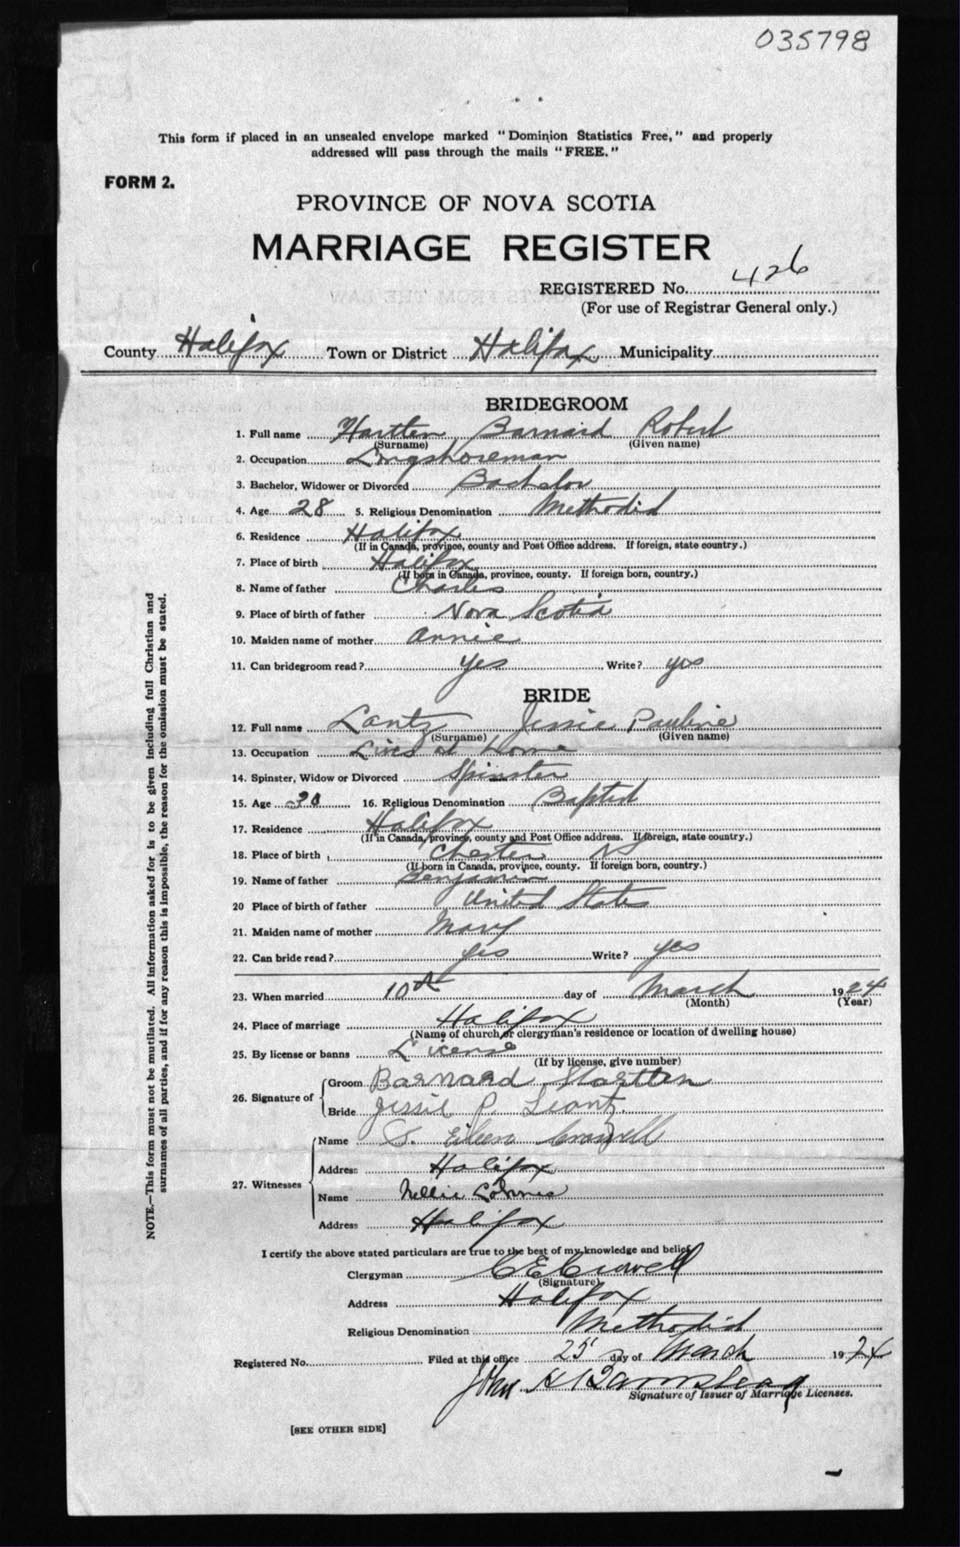 035798
This form if placed in an unsealed envelope marked "Dominion Statistics Free," and properly
addressed will pass through the mails "FREE."
FORM 2.
PROVINCE OF NOVA SCOTIA
MARRIAGE REGISTER
REGISTERED No. 426
(For use of Registrar General only.)
County Halifax Town or District Halifax Municipality
BRIDEGROOM
1. Full name Hartlen Barnard Robert
(Surname) (Given name)
2. Occupation Longshoreman
3. Bachelor, Widower or Divorced Bachelor
4. Age 28 5. Religious Denomination Methodist
6. Residence Halifax
(If in Canada, province, county and Post Office address. If foreign, state country.)
7. Place of birth Halifax
(If born in Canada, province, county. If foreign born, country.)
8. Name of father Charles
9. Place of birth of father Nova Scotia
10. Maiden name of mother Annie
11. Can bridegroom read? yes Write? yes
BRIDE
12. Full name Lantz Jessie Pauline
(Surname) (Given name)
13. Occupation Lived at Home
14. Spinster, Widow or Divorced Spinster
15. Age 30 16. Religious Denomination Baptist
17. Residence Halifax
(If in Canada, province, county and Post Office address. If foreign, state country.)
18. Place of birth Chester NS
(If born in Canada, province, county. If foreign born, country.)
19. Name of father Benjamin
20 Place of birth of father United States
21. Maiden name of mother Mary
22. Can bride read? yes Write? yes
23. When married 10th day of March 1924
(Month) (Year)
24. Place of marriage Halifax
(Name of church or clergyman's residence or location of dwelling house)
25. By license or banns License
(If by license, give number)
26. Signature of Groom Barnard Hartlen
Bride Jessie P. Lantz.
27. Witnesses Name Eileen
Address Halifax
Name Nellie
Address Halifax
I certify the above stated particulars are true to the best of my knowledge and belief,
Clergyman C E Crowell
(Signature)
Address Halifax
Religious Denomination Methodist
Registered No. Filed at this office 25 day of March 1924
John H Barnstead
Signature of Issuer of Marriage Licenses.
[SEE OTHER SIDE]
NOTE.—This form must not be mutilated. All information asked for is to be given including full Christian and
surnames of all parties, and if for any reason this is impossible, the reason for the omission must be stated.